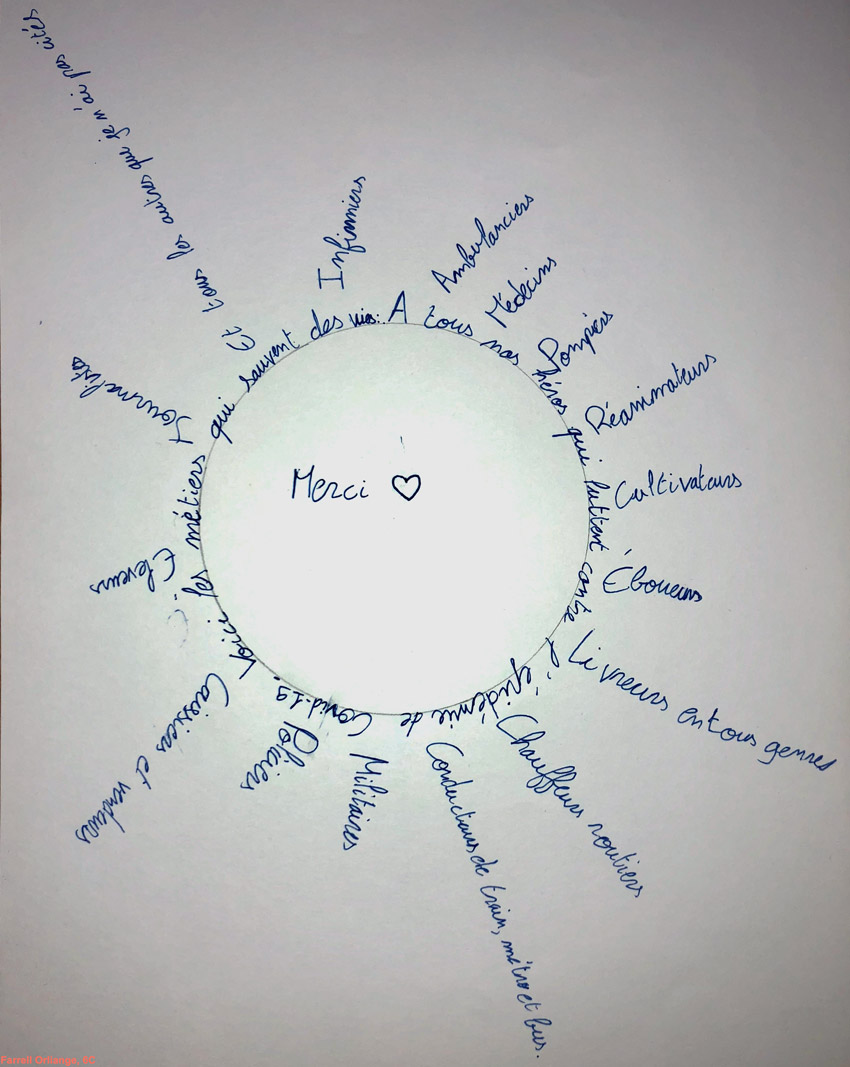 Merci ♡
A tous nos héros qui luttent contre l'épidémie de Covid-19. Voici les métiers qui sauvent des vies:
Infirmiers
Ambulanciers
Médecins
Pompiers
Réanimateurs
Cultivateurs
Éboueurs
Livreurs en tous genres
Chauffeurs routiers
Conducteurs de train, métro et bus.
Militaires
Policiers
Caissiers et vendeurs
Éleveurs
Journalistes
Et tous les autres que je n'ai pas cités
Farrell Orhange, 6C